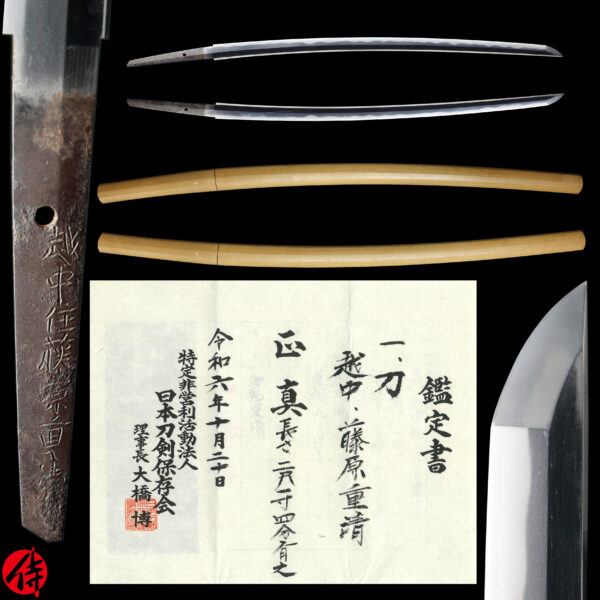 越中住藤原重清
鑑定書
一、刀
越中・藤原重清
正真 長さ二尺一寸四分有之
令和六年十月二十日
特定非営利活動法人
日本刀剣保存会
理事長 大橋博
侍